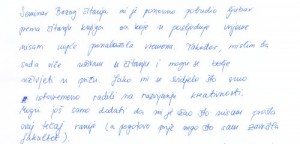 Seminar Brzog čitanja mi je ponovno potaknuo ljubav
prema čitanju knjiga za koje u posljednje vrijeme
nisam uopće pronalazila vremena. Također, mislim da
sada više uživam u čitanju i mogu se bolje
uživjeti u priču. Jako mi se svidjelo što smo
istovremeno radili na razvijanju kreativnosti.
Mogu još samo dodati da mi je žao što nisam prošla
ovaj tečaj ranije (a pogotovo prije nego što sam završila
fakultet).